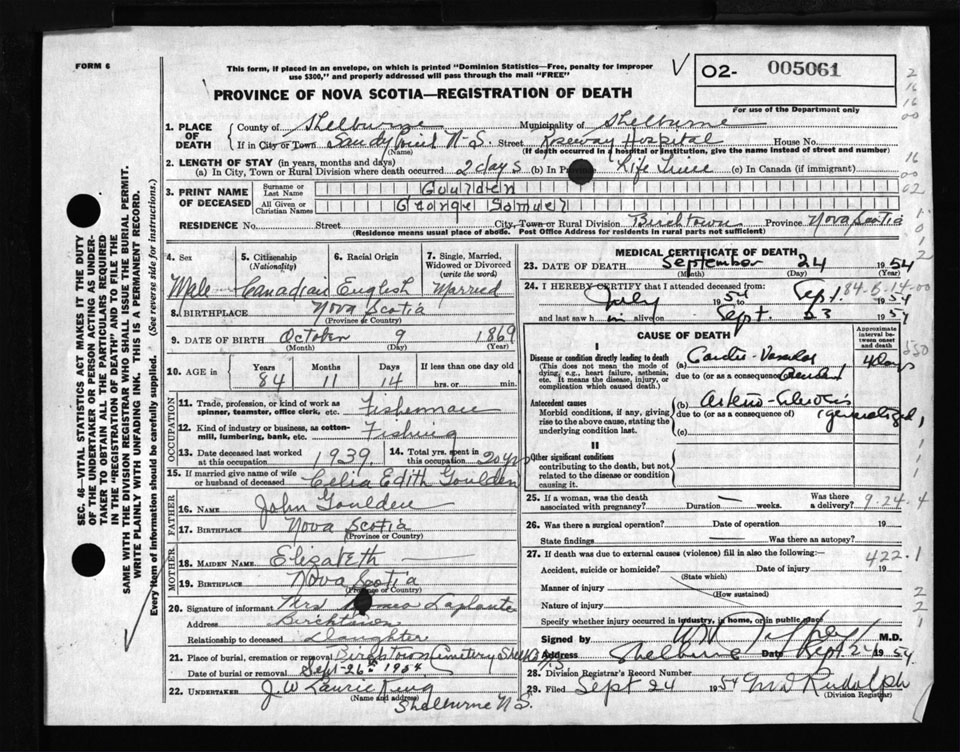 FORM 6
This form, if placed in an envelope, on which is printed "Dominion Statistics—Free, penalty for improper
use $300," and properly addressed will pass through the mail "FREE"
O2- 005061
For use of the Department only
PROVINCE OF NOVA SCOTIA—REGISTRATION OF DEATH
1. PLACE OF DEATH
County of Shelburne Municipality of Shelburne
If in City or Town Sandy Point N-S. Street Roseway Hospital House No.
(Name) (If death occurred in a hospital or institution, give the name instead of street and number)
2. LENGTH OF STAY (in years, months and days)
(a) In City, Town or Rural Division where death occurred 2 days (b) In Life Time (c) In Canada (if immigrant)
3. PRINT NAME OF DECEASED
Surname or Last Name Goulden
All Given or Christian Names George Samuel
RESIDENCE No. Street City, Town or Rural Division Birchtown Province Nova Scotia
(Residence means usual place of abode. Post Office Address for residents in rural parts not sufficient)
4. Sex Male
5. Citizenship (Nationality) Canadian
6. Racial Origin English
7. Single, Married, Widowed or Divorced (write the word) Married
8. BIRTHPLACE Nova Scotia
(Province or Country)
9. DATE OF BIRTH October 9 1869
(Month) (Day) (Year)
10. AGE in Years 84 Months 11 Days 14 If less than one day old hrs. or min.
OCCUPATION
11. Trade, profession, or kind of work as spinner, teamster, office clerk, etc. Fisherman
12. Kind of industry or business, as cotton-mill, lumbering, bank, etc. Fishing
13. Date deceased last worked at this occupation 1939.
14. Total yrs. spent in this occupation 20 yrs
15. If married give name of wife or husband of deceased Celia Edith Goulden
FATHER
16. NAME John Goulden
17. BIRTHPLACE Nova Scotia
(Province or Country)
MOTHER
18. MAIDEN NAME Elizabeth
19. BIRTHPLACE Nova Scotia
(Province or Country)
20. Signature of informant Mrs Laplante
Address Birchtown
Relationship to deceased Daughter
21. Place of burial, cremation or removal Birchtown Cemetery
Date of burial or removal Sept-26th 1954
22. UNDERTAKER J. W. Laurie King
(Name and address)
Shelburne N S.
MEDICAL CERTIFICATE OF DEATH
23. DATE OF DEATH September 24 1954
(Month) (Day) (Year)
24. I HEREBY CERTIFY that I attended deceased from:
July 1954 to Sept. 1954
and last saw h im alive on Sept 23 1954
84-B-14-00
CAUSE OF DEATH
Approximate interval between onset and death
I
Disease or condition directly leading to death
(This does not mean the mode of dying, e.g., heart failure, asthenia, etc. It means the disease, injury, or complication which caused death.)
(a) Cardio-Vascular 4 days
due to (or as a consequence of)
Antecedent causes
Morbid conditions, if any, giving rise to the above cause, stating the underlying condition last.
(b) Arterio-Sclerosis
due to (or as a consequence of) (generalized)
(c)
II
Other significant conditions
contributing to the death, but not related to the disease or condition causing it.
25. If a woman, was the death associated with pregnancy? — Duration weeks. Was there a delivery? 9-24-4
26. Was there a surgical operation? — Date of operation 19
State findings Was there an autopsy? —
27. If death was due to external causes (violence) fill in also the following:— 422.1
Accident, suicide or homicide? Date of injury 19
(State which)
Manner of injury
(How sustained)
Nature of injury
Specify whether injury occurred in industry, in home, or in public place
Signed by M.D.
Address Shelburne N.S. Date Sept 24 1954.
28. Division Registrar's Record Number
29. Filed Sept 24 1954 Rudolph
(Division Registrar)
SEC. 46—VITAL STATISTICS ACT MAKES IT THE DUTY
OF THE UNDERTAKER OR PERSON ACTING AS UNDER-
TAKER TO OBTAIN ALL THE PARTICULARS REQUIRED
IN THE "REGISTRATION OF DEATH" AND TO FILE THE
SAME WITH THE DIVISION REGISTRAR WHO SHALL ISSUE THE BURIAL PERMIT.
WRITE PLAINLY WITH UNFADING INK. THIS IS A PERMANENT RECORD.
Every item of information should be carefully supplied. (See reverse side for instructions.)